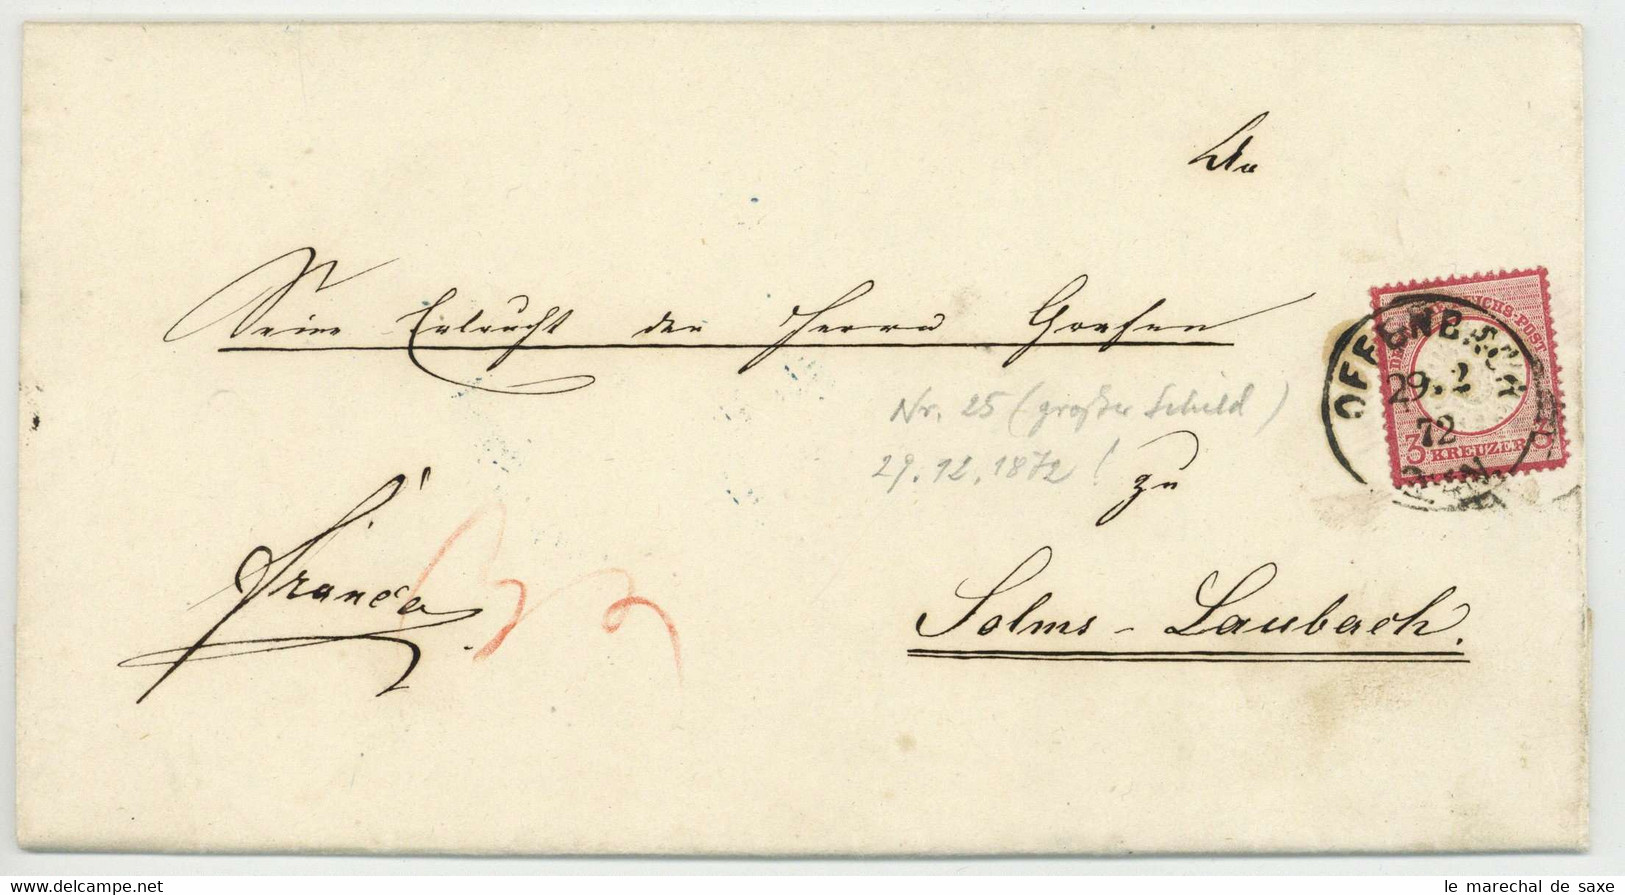 An
Seine Erlaucht den Herrn Grafen
Nr. 25 (großer Schild)
29.12.1872!
zu
Solms-Laubach.
Franco
OFFENBACH
29.2
72
REICHS-POST
3 KREUZER
www.delcampe.net
le marechal de saxe